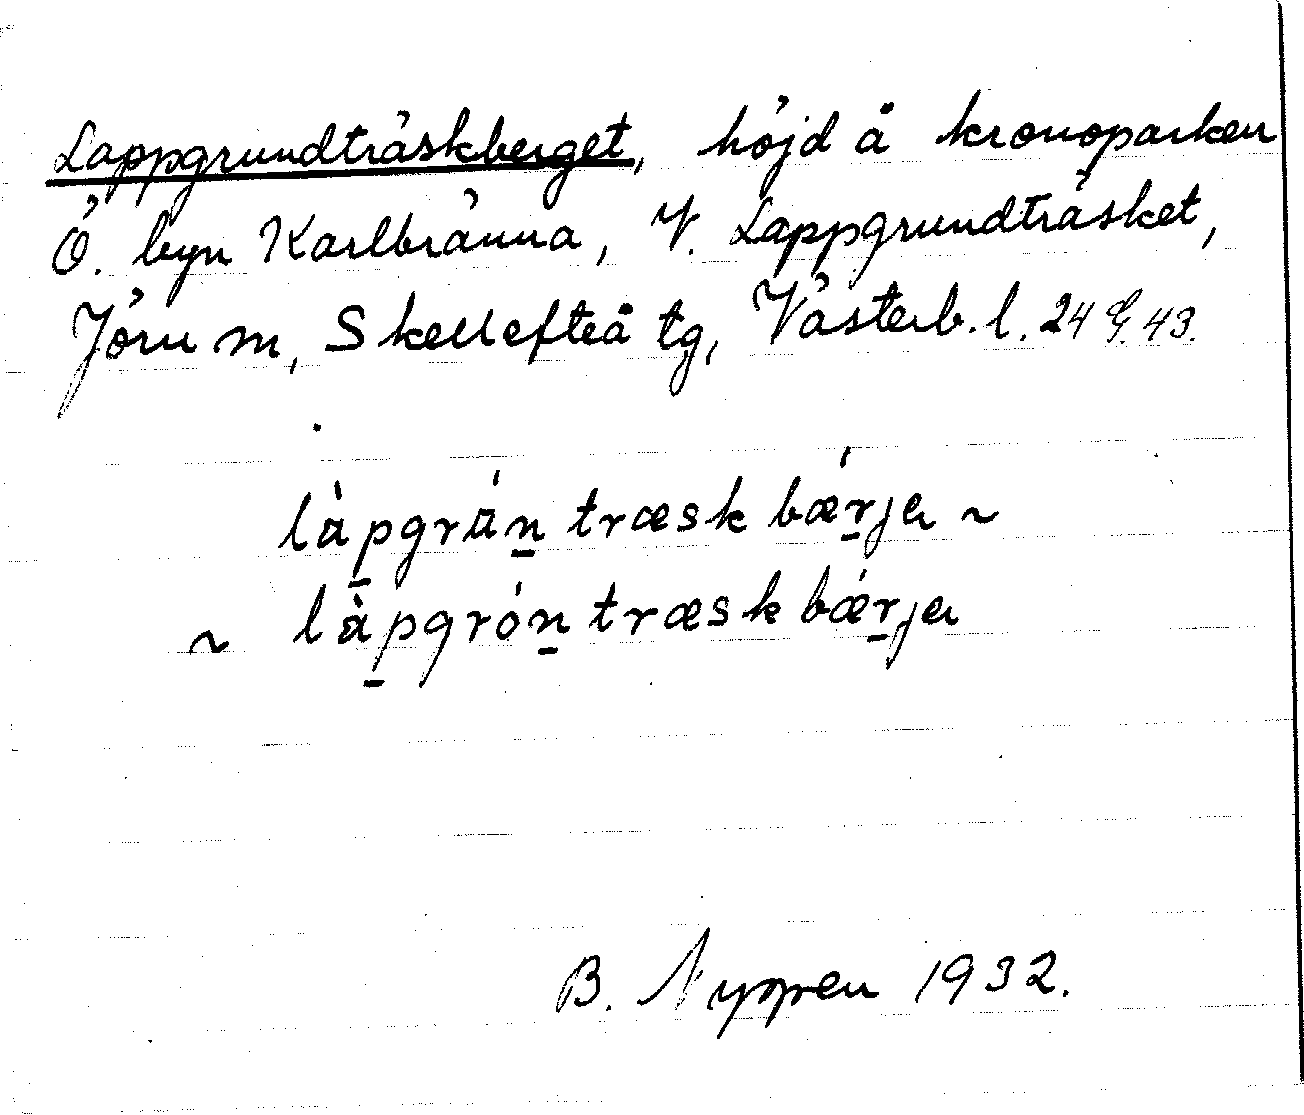 Lappgrundträskberget, höjd å kronoparken
Ö. byn Karlbränna, V. Lappgrundträsket,
Jörn sn, Skellefteå tg, Västerb. l. 24 G. 43.
làp̱grún̠træskbær̠ja ~
~ làp̱grón̠træskbǽr̠ja
B. Nyppen 1932.